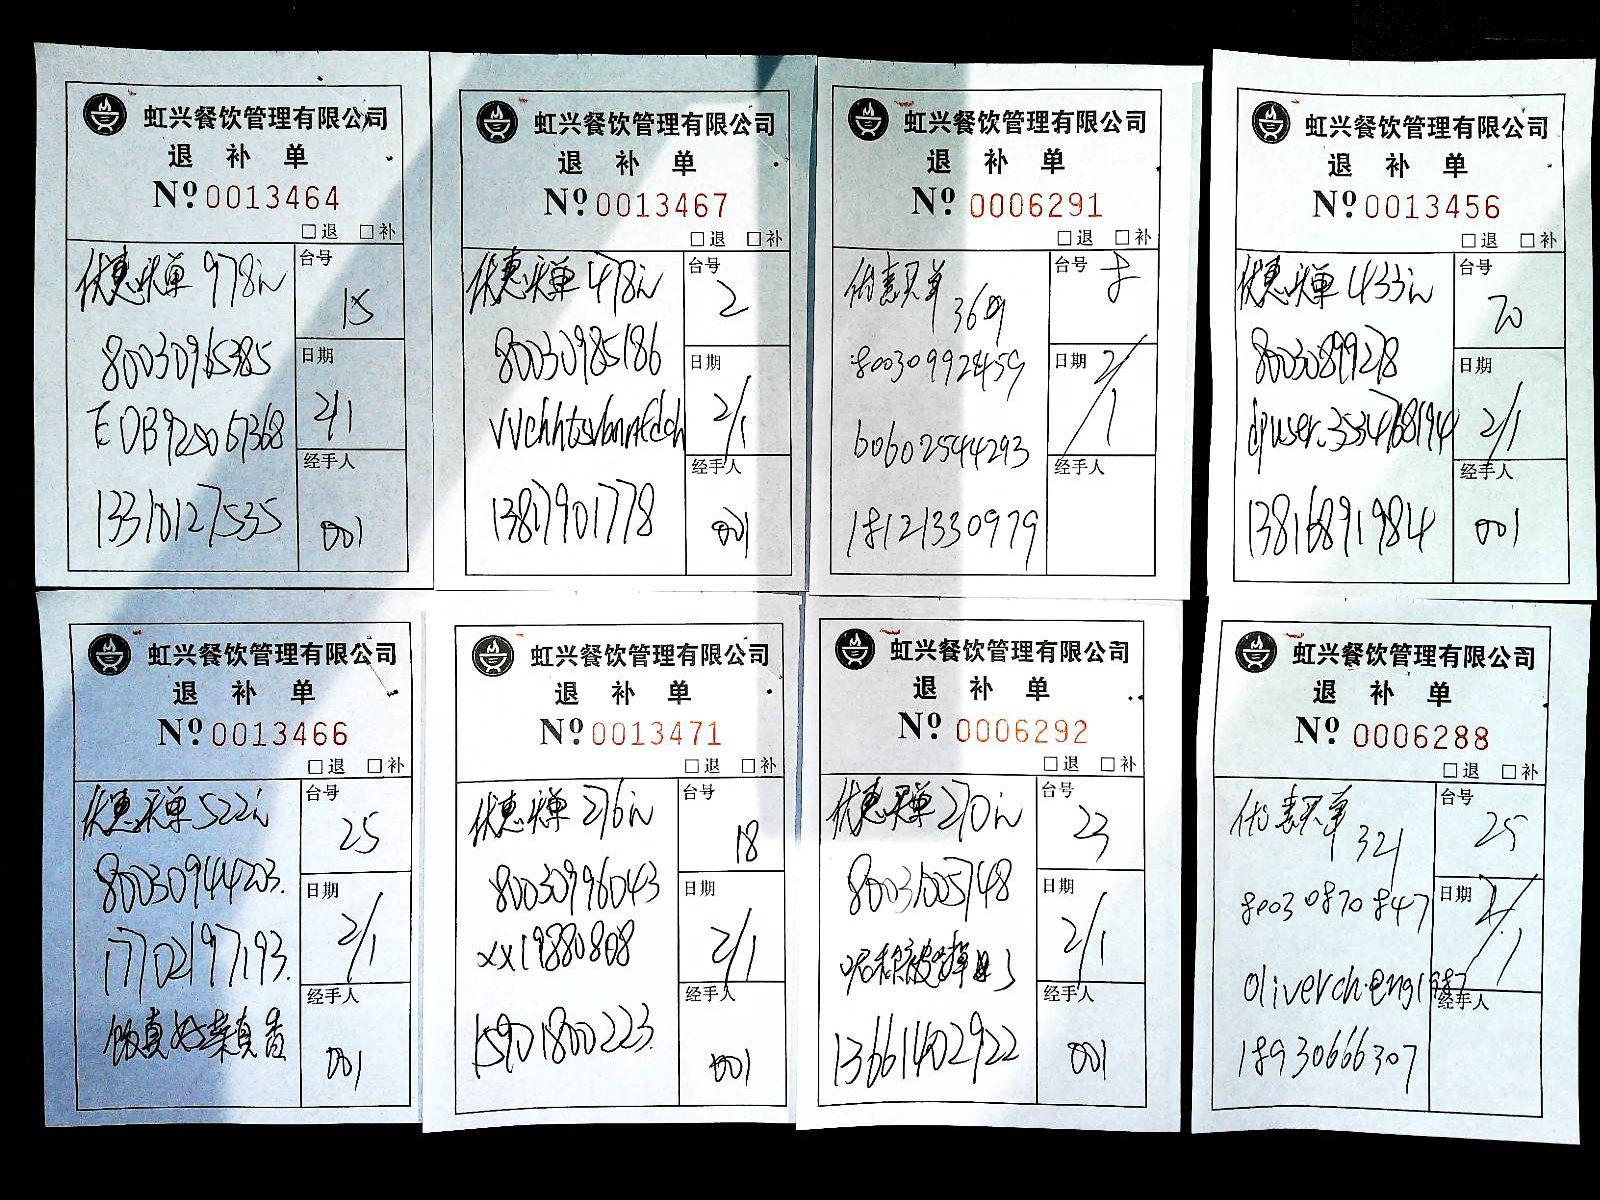 虹兴餐饮管理有限公司
退 补 单
Nº 0013464
□退 □补
优惠买单 978元
台号
15
80030965385
日期
2/1
EDB925067368
经手人
13310127535
001
虹兴餐饮管理有限公司
退 补 单
Nº 0013467
□退 □补
优惠买单 478元
台号
2
80030985186
日期
2/1
经手人
13817901778
001
虹兴餐饮管理有限公司
退 补 单
Nº 0006291
□退 □补
优惠买单
台号
8
369
80030992459
日期
2/1
60602544293
经手人
18121330979
虹兴餐饮管理有限公司
退 补 单
Nº 0013456
□退 □补
优惠买单 433元
台号
20
80030899278
日期
2/1
经手人
13816891984
001
虹兴餐饮管理有限公司
退 补 单
Nº 0013466
□退 □补
优惠买单 522元
台号
25
80030944203.
日期
2/1
17702197193.
经手人
饭真好菜真香
001
虹兴餐饮管理有限公司
退 补 单
Nº 0013471
□退 □补
优惠买单 276元
台号
18
80030996043
日期
2/1
xx19880808
经手人
15901800223.
001
虹兴餐饮管理有限公司
退 补 单
Nº 0006292
□退 □补
优惠买单 270元
台号
23
80031005748
日期
2/1
经手人
13661402922
001
虹兴餐饮管理有限公司
退 补 单
Nº 0006288
□退 □补
优惠买单
台号
25
321
80030870847
日期
2/1
olivercheng1987
经手人
18930666307